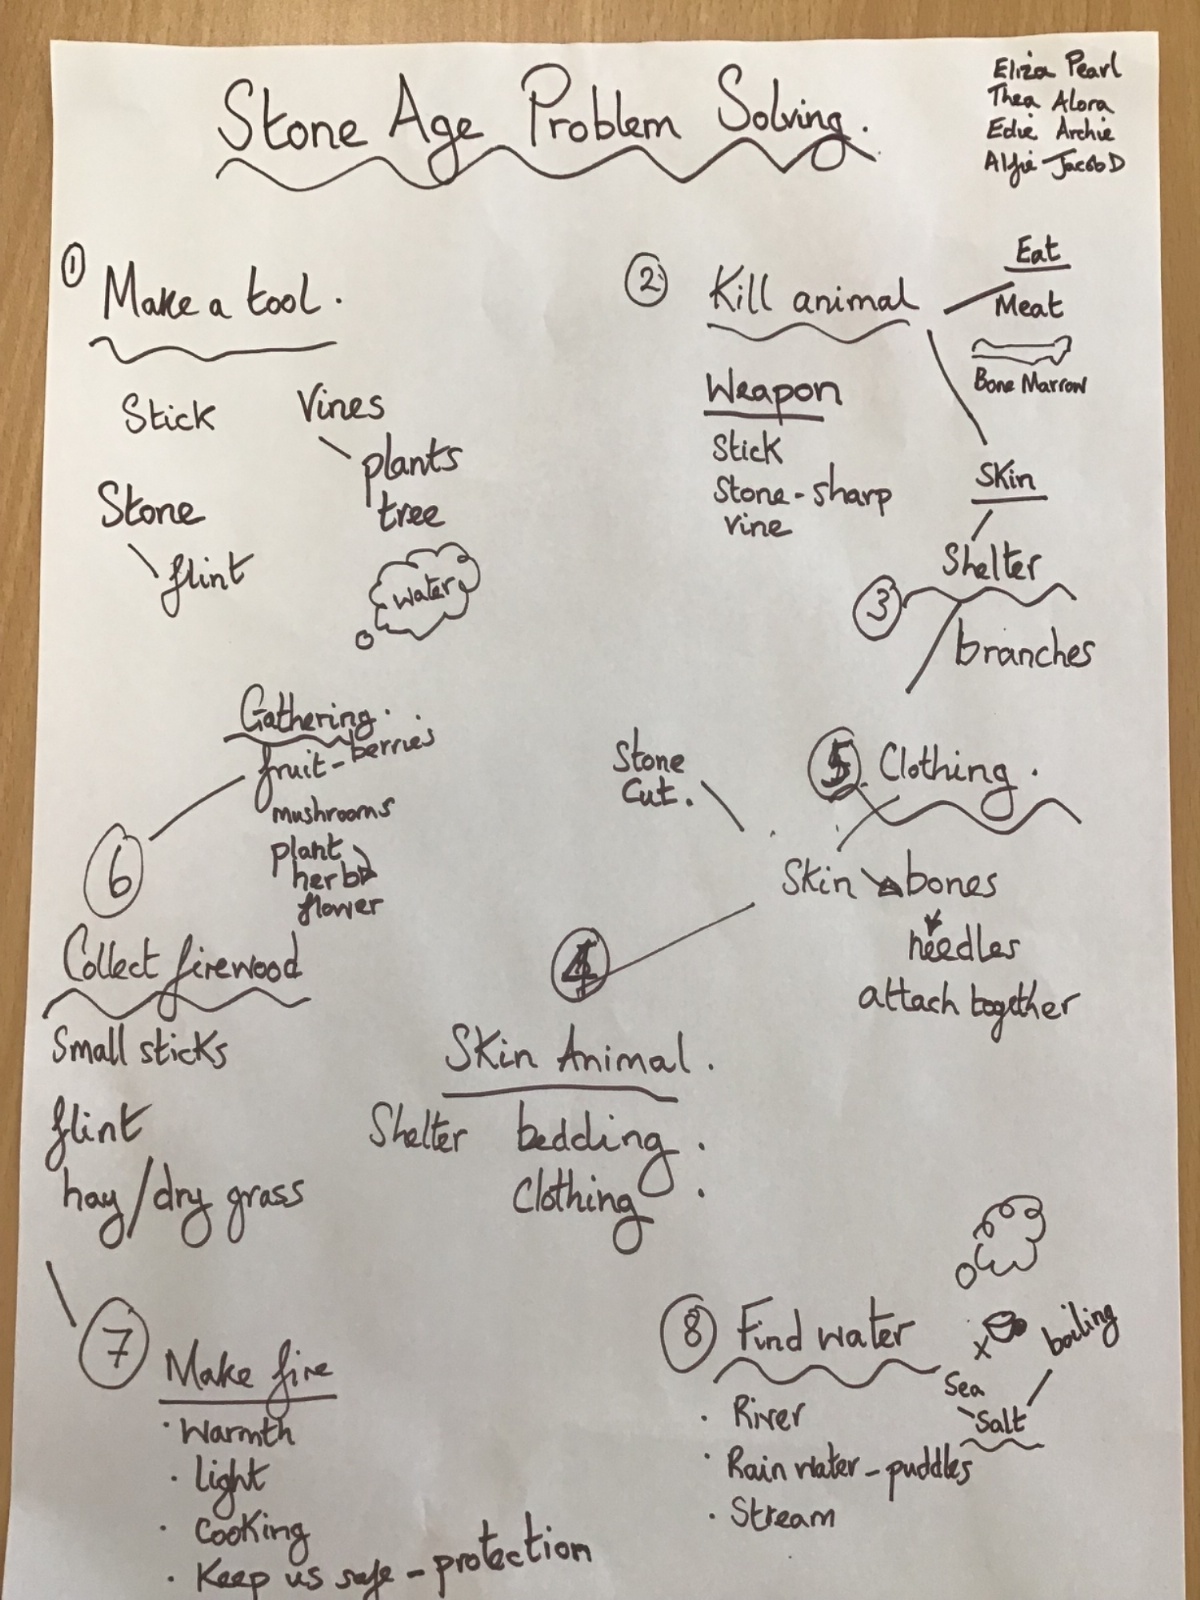 Stone Age Problem Solving.
Eliza Pearl
Thea Alora
Edie Archie
Alfie Jacob D
① Make a tool.
Stick
Vines
plants
tree
Stone
flint
water
② Kill animal
Eat
Meat
Bone Marrow
Weapon
Stick
Stone - sharp
vine
Skin
Shelter
③
branches
Gathering.
fruit - berries
mushrooms
plant
herbs
flower
Stone
Cut.
5 Clothing.
Skin bones
needles
attach together
4
Skin Animal.
Shelter bedding.
Clothing.
6
Collect firewood
Small sticks
flint
hay/dry grass
7 Make fire
· Warmth
· light
· cooking
· Keep us safe - protection
8 Find water
· River
· Rain water - puddles
· Stream
x
Sea
Salt
boiling